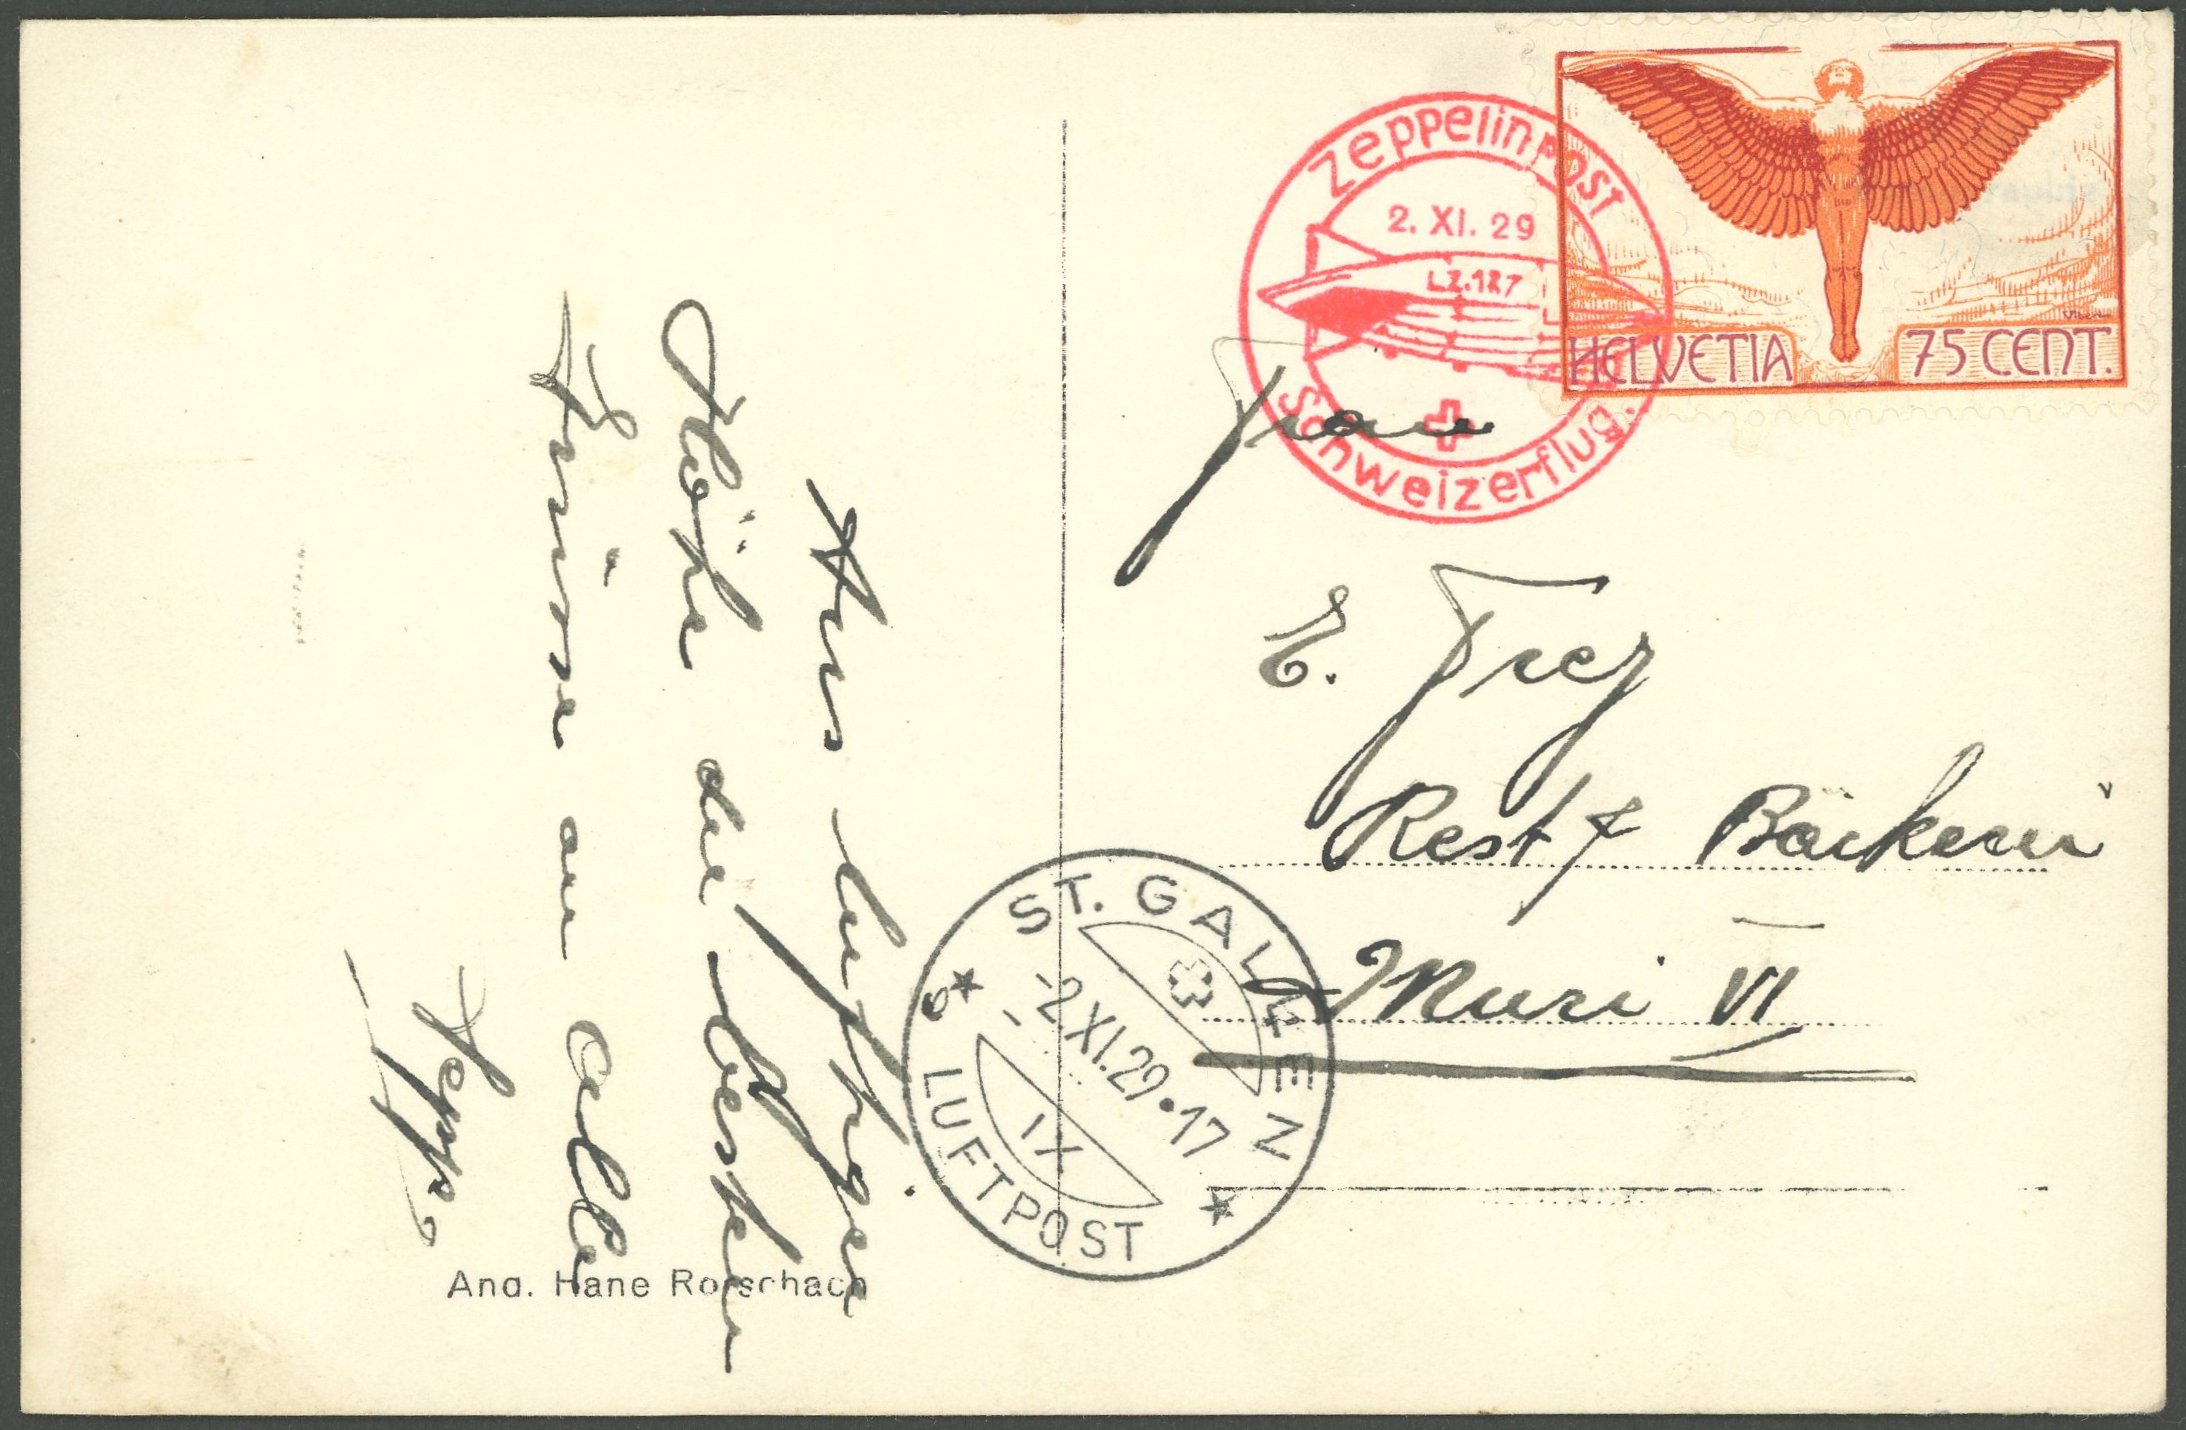 Zeppelinpost
2. XI. 29
LZ.127
Schweizerflug.
HELVETIA
75 CENT.
Frau
E. Frey
Rest & Bäckerei
Muri VI
Aus luftiger
Höhe die besten
Grüsse an alle
Seppi
ST. GALLEN
-2.XI.29•17
IX
LUFTPOST
And. Hane Rorschach